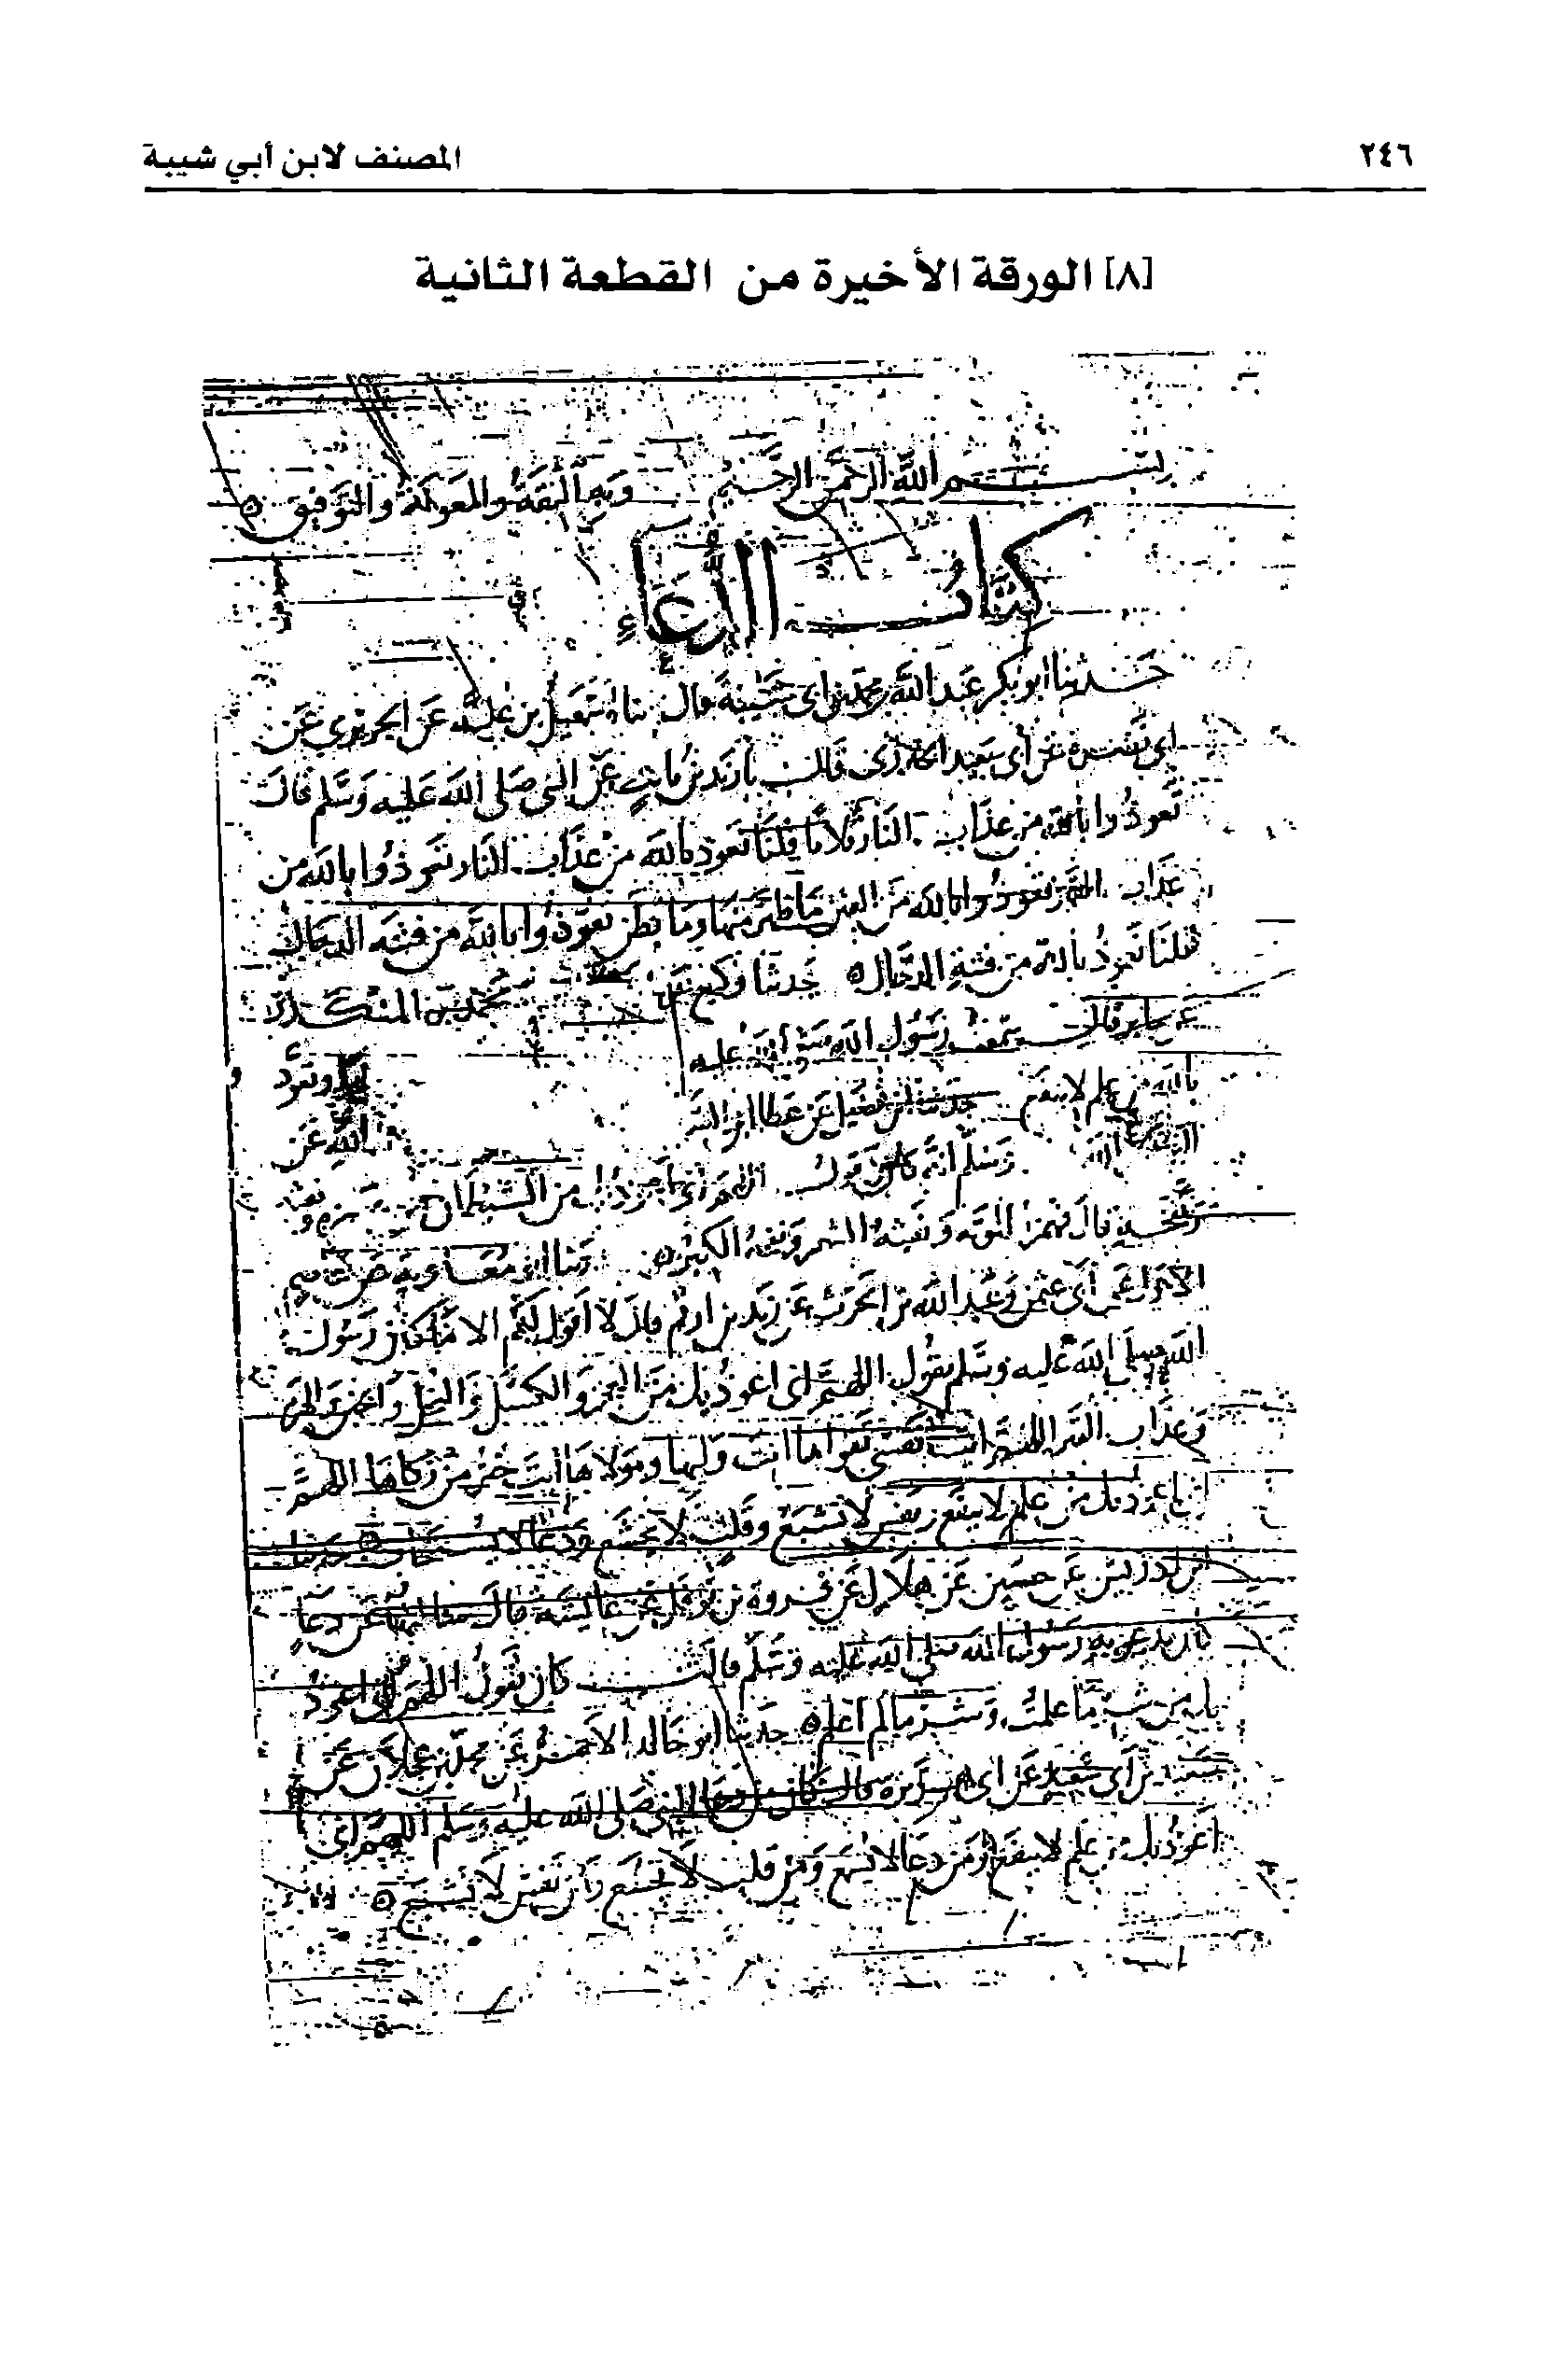 ٢٤٦
المصنف لابن أبي شيبة
[٨] الورقة الأخيرة من القطعة الثانية
بسم الله الرحمن الرحيم وبه الثقة والمعونة والتوفيق
كتاب الدعاء
حدثنا ابو بكر عبد الله بن محمد بن ابي شيبة قال ثنا اسمعيل بن علية عن الجريري عن
ابي نضرة عن ابي سعيد الخدري قال زيد بن ثابت عن النبي صلى الله عليه وسلم قال
تعوذوا بالله من عذاب النار ثلاثا قلنا نعوذ بالله من عذاب النار تعوذوا بالله من
عذاب القبر تعوذوا بالله من الفتن ما ظهر منها وما بطن تعوذوا بالله من فتنة الدجال
قلنا نعوذ بالله من فتنة الدجال حدثنا وكيع عن محمد بن المنكدر
عن جابر قال سمعت رسول الله صلى الله عليه وتعوذ
بالله من علم لا ينفع حدثنا ابن فضيل عن عطا ابن السا عن
وسلم انه كان يقول اللهم اني اعوذ بك من الشيطان
قال فهمزه الموتة ونفثه الشعر ونفخه الكبر ثنا ابو معاوية عن عاصم
الاحول عن ابي عثمن وعبد الله بن الحرث عن زيد بن ارقم قال لا اقول لكم الا ما كان رسول
الله صلى الله عليه وسلم يقول اللهم اني اعوذ بك من العجز والكسل والبخل والجبن والهرم
وعذاب القبر اللهم ات نفسي تقواها انت وليها ومولاها انت خير من زكاها اللهم
اني اعوذ بك من علم لا ينفع ونفس لا تشبع وقلب لا يخشع ودعا لا يستجاب حدثنا
ابن ادريس عن حصين عن هلال عن فروة بن نوفل عن عايشة قال سالتها عن دعا
كان يدعو به رسول الله صلى الله عليه وسلم قالت كان يقول اللهم اني اعوذ
بك من شر ما علمت وشر ما لم اعلم حدثنا ابو خالد الاحمر عن محمد بن عجلان عن
سعيد بن ابي سعيد عن ابي هريرة قال كان من دعا النبي صلى الله عليه وسلم اللهم اني
اعوذ بك من علم لا ينفع ومن دعا لا يسمع ومن قلب لا يخشع ومن نفس لا تشبع